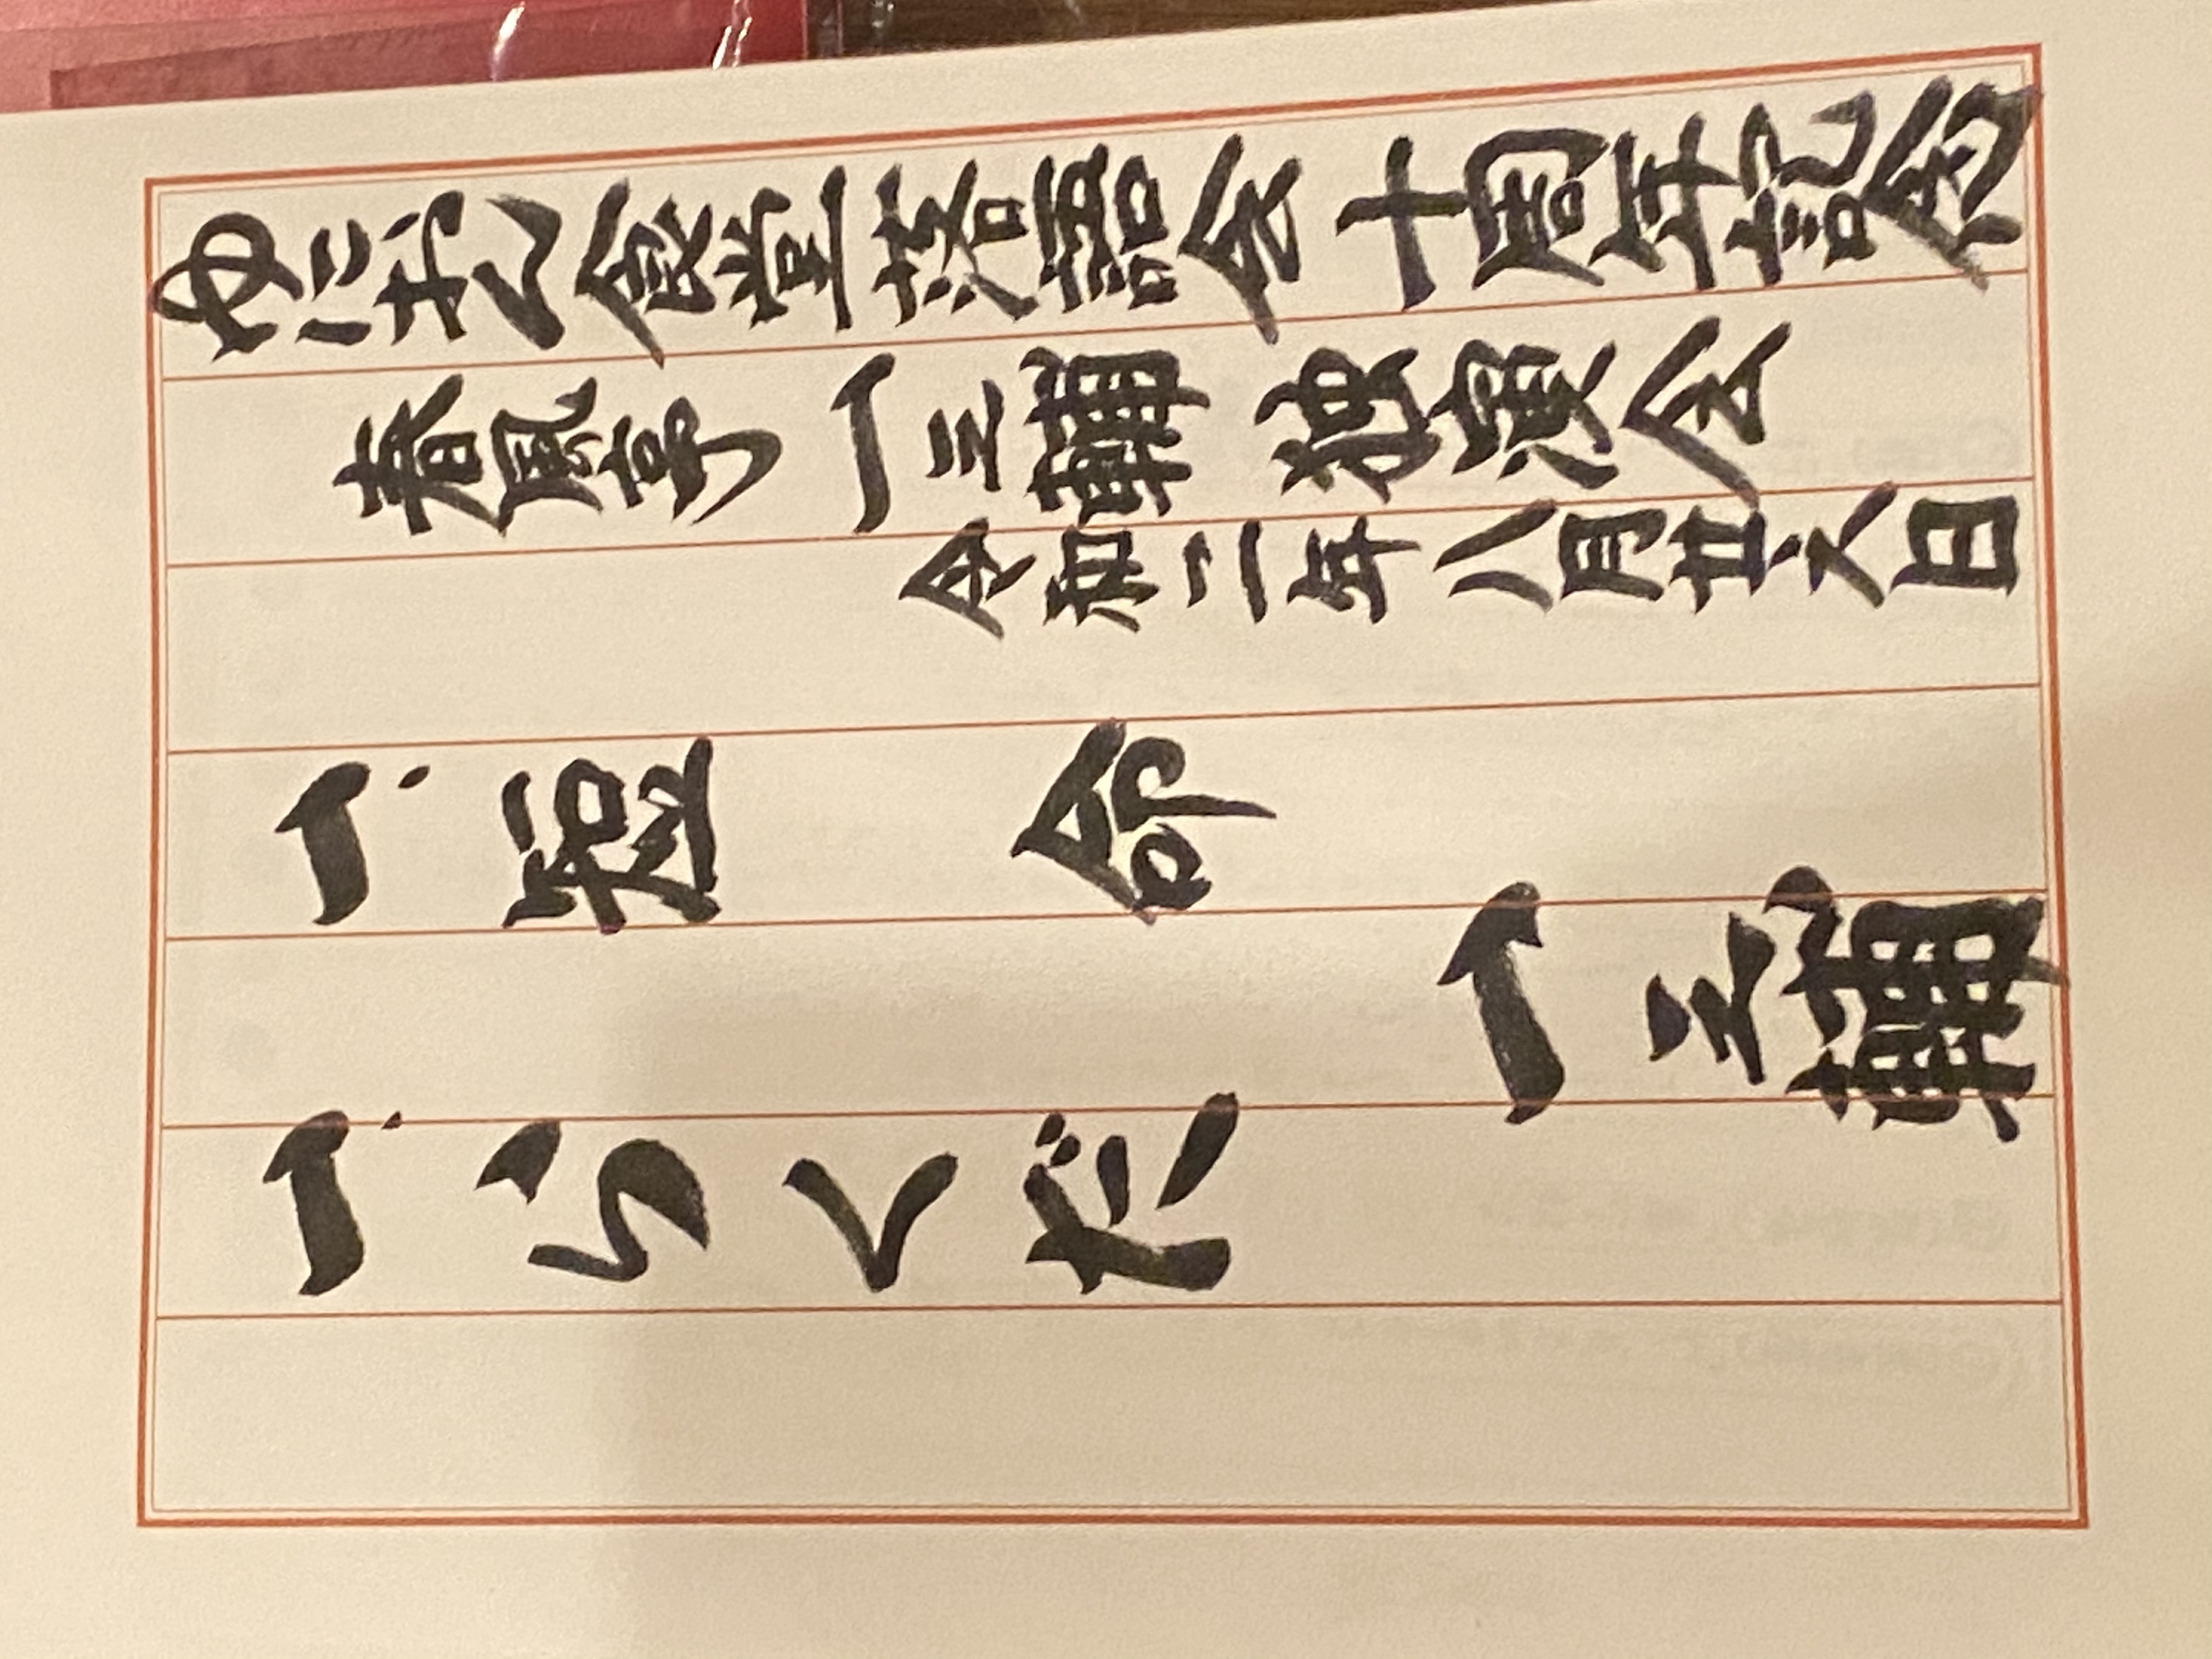 ゆにおん食堂落語会十周年記念
春風亭一之輔 独演会
令和二年八月廿六日
一、短命
一之輔
一、らくだ